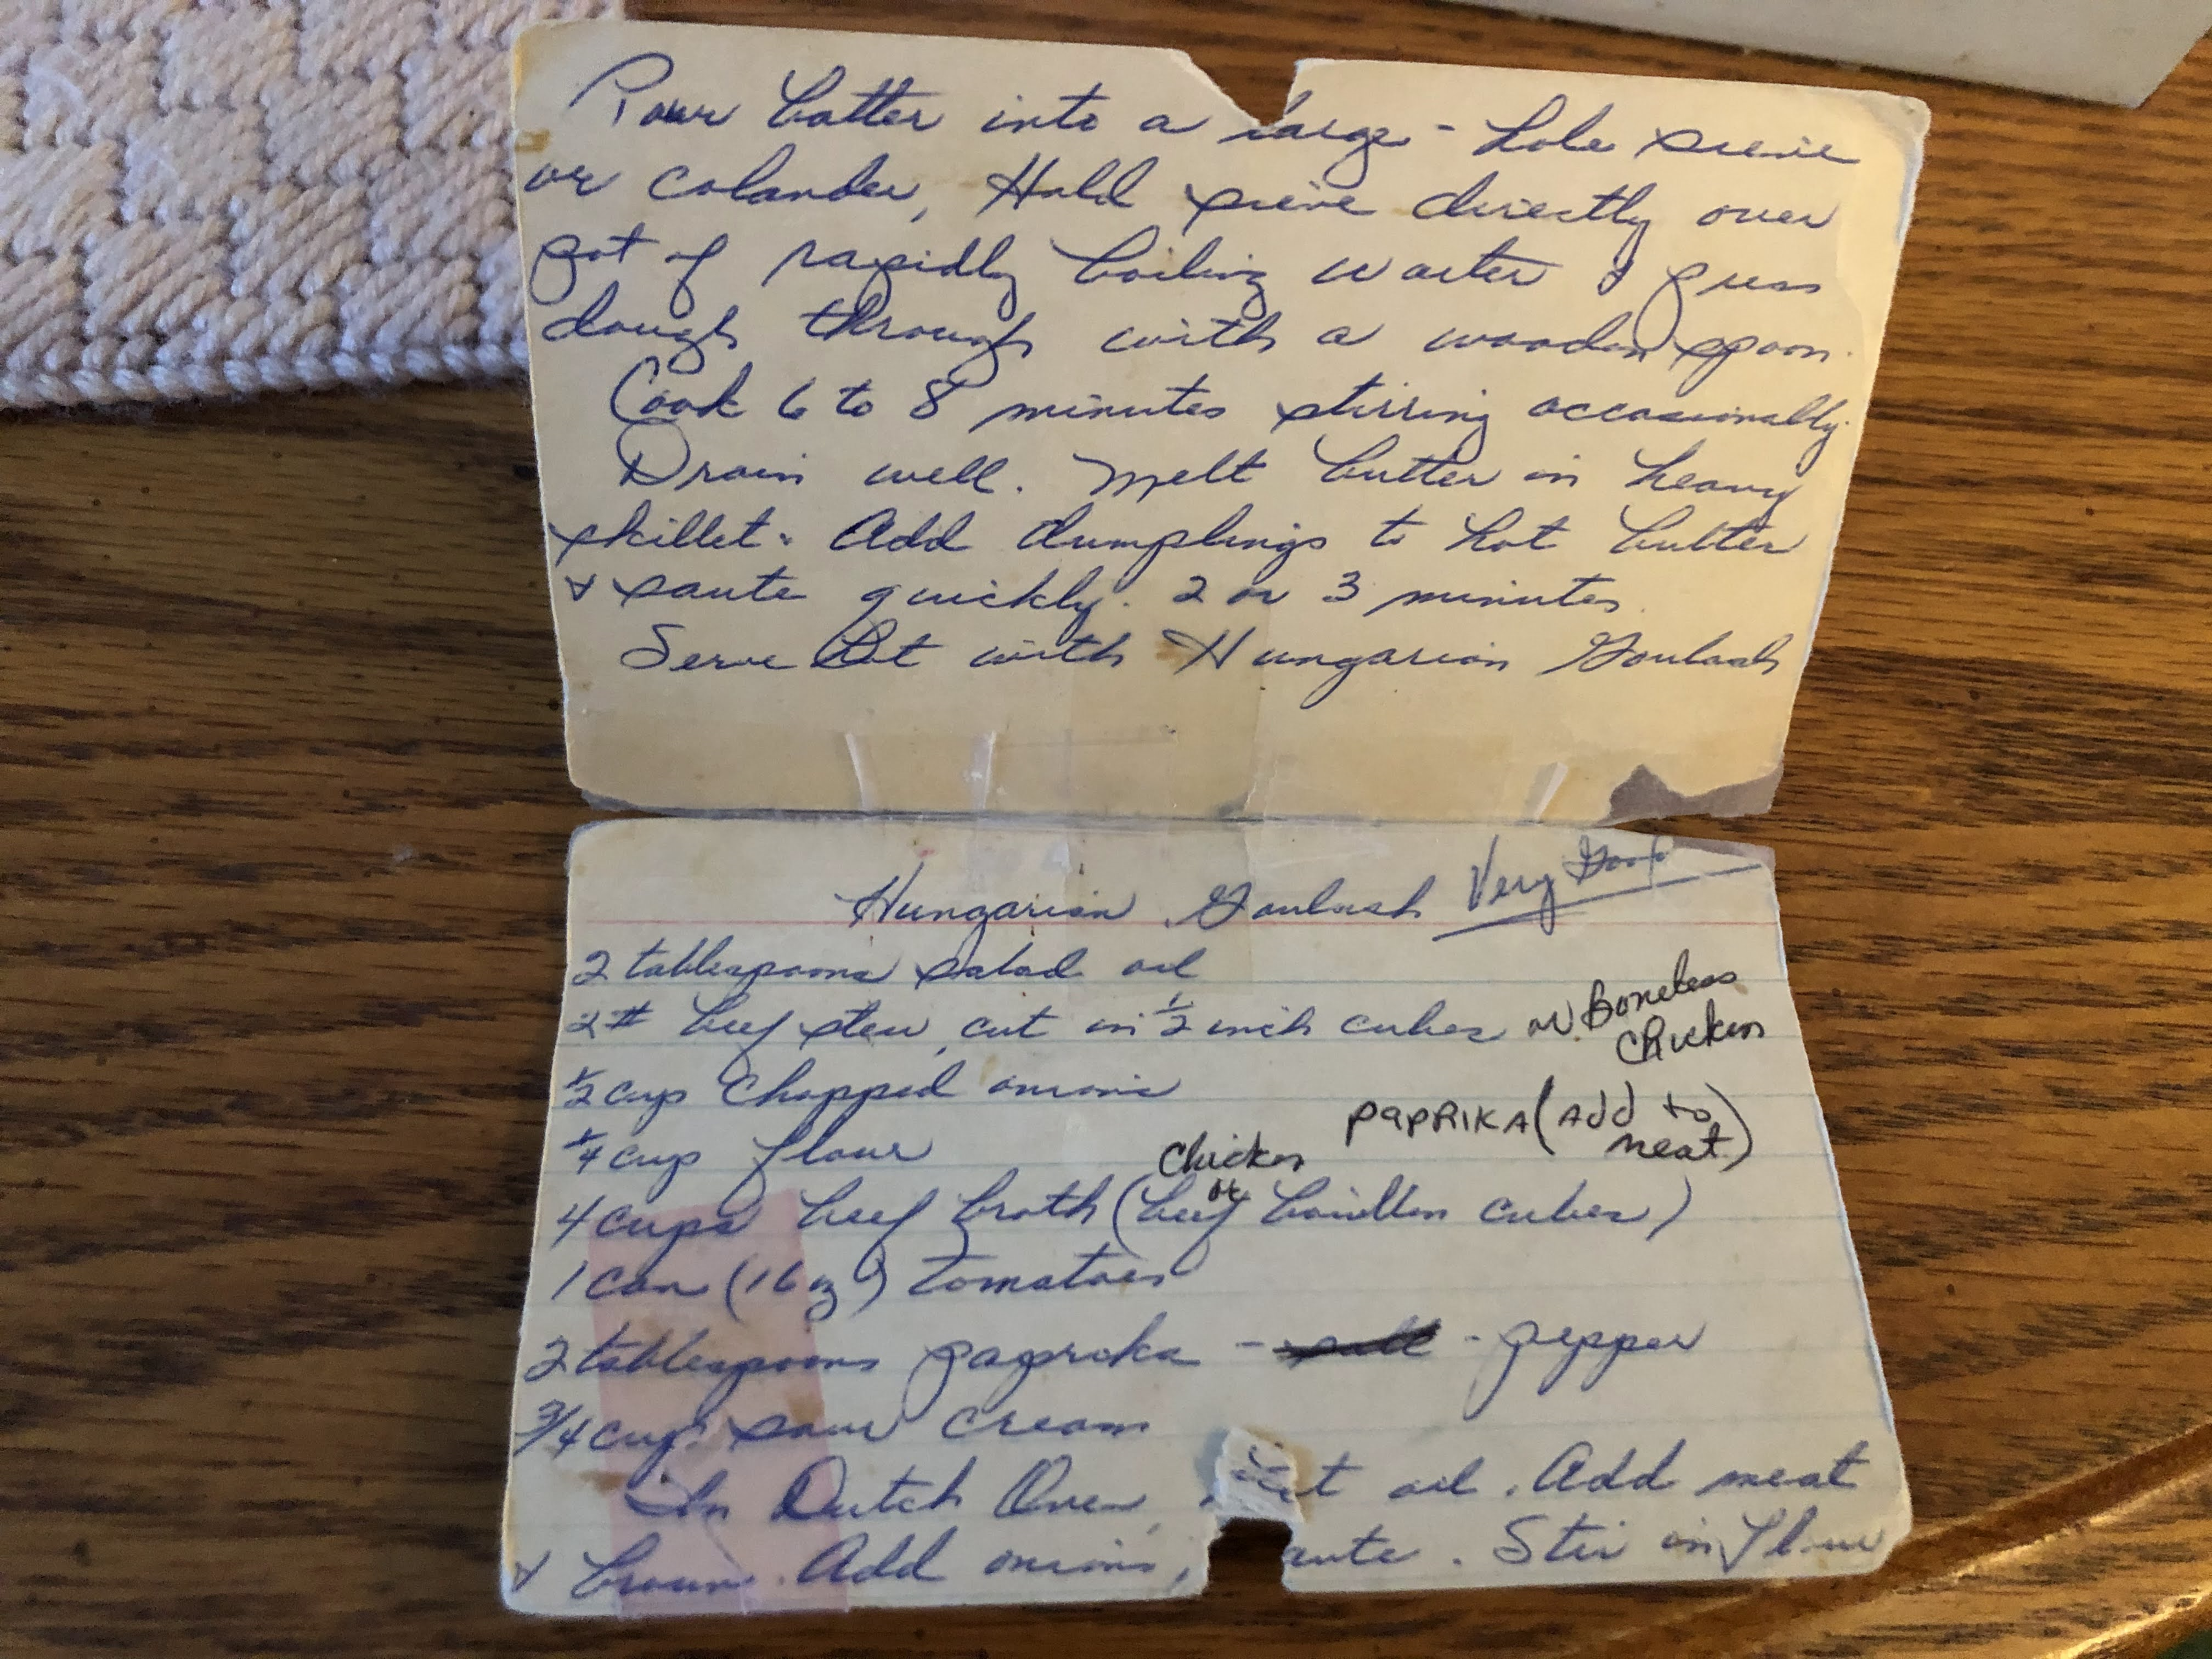 Pour batter into a large-hole sieve
or colander, Hold sieve directly over
pot of rapidly boiling water & press
dough through with a wooden spoon.
Cook 6 to 8 minutes stirring occasionally.
Drain well. Melt butter in heavy
skillet. Add dumplings to hot butter
& saute quickly. 2 or 3 minutes.
Serve Hot with Hungarian Goulash
Hungarian Goulash Very Good
2 tablespoons salad oil
2# beef stew, cut in 1/2 inch cubes or Boneless
Chicken
1/2 cup chopped onions
paprika (Add to
meat)
1/4 cup flour
Chicken
or
4 cups beef broth (beef bouillon cubes)
1 can (16 oz) tomatoes
2 tablespoons paprika - salt - pepper
3/4 cup sour cream
In Dutch Oven, oil. Add meat
& brown. Add onions, Stir in flour